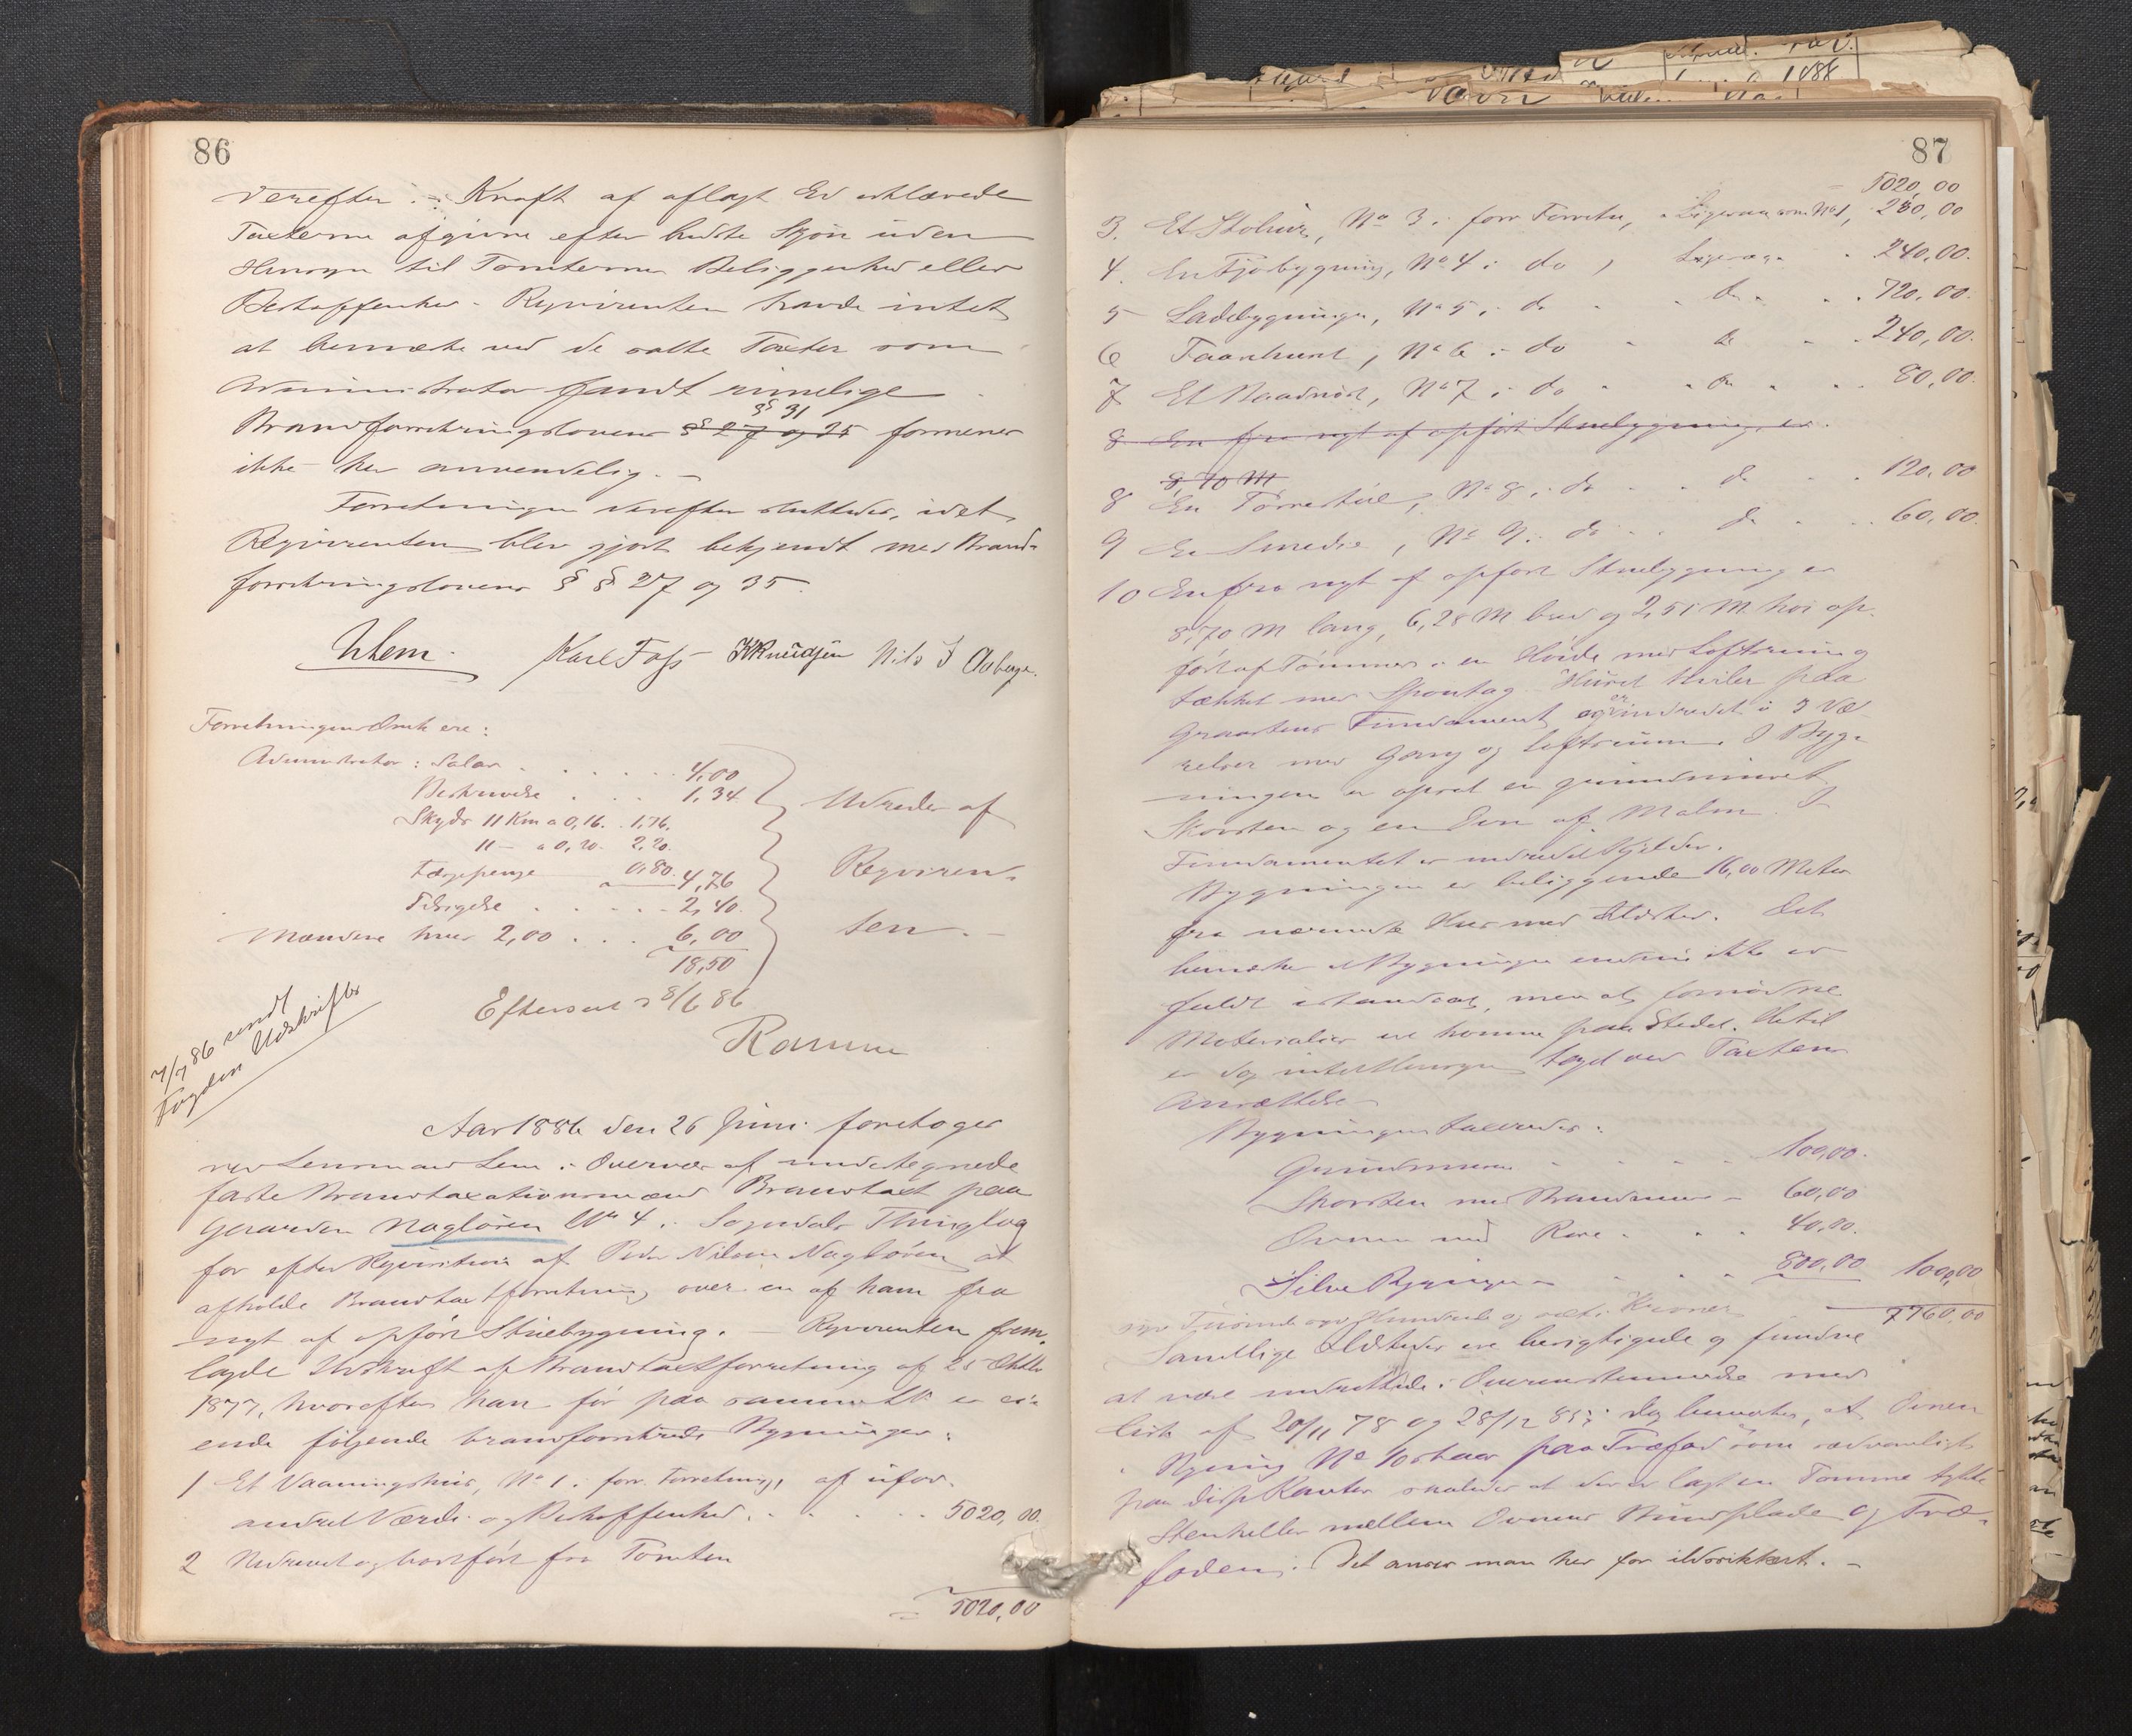 86
Derefter i Kraft af aflagt Ed erklærede
Taxterne afgivne efter bedste Skjøn uden
Hensyn til Tomternes Beliggenhed eller
Beskaffenhed. Reqvirenten havde intet
at bemærke ved de satte Taxter som
Administrator fandt rimelige
§ 31
Brandforsikringslovens § 27 og 35 formenes
ikke her anvendelig. -
Forretningen derefter sluttedes, idet
Reqvirenten blev gjort bekjendt med Brand-
forsikringslovens § § 27 og 35.
Lem. Karl Foss K Knudsen Nils J
Forretningens ere:
Administrator: Salær . . . 4,00
Beskrivelse . . . 1,34
Skyds 11 Km a 0,16. . 1,76.
11 — a 0,20. 2,20.
Færgepenge 0,80. 4,76
Tilsigelse . . . 2,40.
Mændene hver 2,00 . . . 6,00
18,50
Udredes af
Reqviren-
ten. -
Efterseet 28/6 86
Ramm
7/7 86 sendt
Fogden Udskrift
Aar 1886 den 26 Juni foretoges
ved Lensmand Lem i Overvær af undertegnede
faste Brandtaxationsmænd Brandtaxt paa
Gaarden Nagløren No 4 i Sogndals Thinglag
for efter Reqvisition af Peder Nilsen Nagløren at
afholde Brandtaxtforretning over en af ham fra
nyt af opført Stuebygning. — Reqvirenten frem-
lagde Udskrift af Brandtaxtforretning af 25 Oktbr
1877, hvorefter han før paa er ei-
ende følgende brandforsikrede Bygninger:
1 Et Vaaningshus, No 1 i forr. Forretning, af ufor-
andret Værdi og Beskaffenhed . . . 5020,00.
2 Nedrevet og bortført fra Tomten
= 5020,00
87
5020,00
3. Et Stolhus, No 3 i forr Forretn, Ligesaa som No 1, 280,00
4. En Fjøsbygning, No 4 i do, Ligesaa . 240,00.
5 Ladebygningen, No 5 i do . . do . . 720,00.
6 Faarehuset, No 6 i do . do . . 240,00.
7 Et Naadnøst, No 7 i do . . do . . 80,00.
8 En fra nyt af opført Stuebygning, er
8,70 M
8 En Tørrestue, No 8 i do . . do . . 120,00
9 En Smedie, No 9 i do . . do . . 60,00.
10 En fra nyt af opført Stuebygning er
8,70 M lang, 6,28 M bred og 2,51 M høi op-
ført af Tømmer i en Høide med Loftsrum og
tækket med Spontag. Huset hviler paa
Graastens Fundament og er indredet i 3 Væ-
relser med Gang og Loftsrum. I Byg-
ningen er opsat en grundmuret
Skorsten og en Ovn af Malm. I
Fundamentet er indredet Kjelder.
Bygningen er beliggende 16,00 Meter
fra nærmeste Hus med Ildsted. Det
bemærkes at Bygningen endnu ikke er
fuldt istandsat, men at fornødne
Materialier ere komne paa Stedet. Hertil
er dog intet Hensyn taget ved Taxtens
Ansættelse
Bygningen taxeredes:
Grundmuren . . . 100,00.
Skorsten med Brandmur - 60,00
Ovnen med Rør . . . 40,00.
Selve Bygningen - . . 800,00 1000,00
7760,00
syv Tusinde syv Hundrede og Kroner
Samtlige Ildsteder ere besigtigede og fundne
at være indrettede i Overensstemmelse med
Cirk af 20/11 78 og 28/12 85; dog bemærkes, at Ovnen
i Bygning No 10 staar paa Træfod som sædvanligt
paa disse Kanter saaledes at der er lagt en Tomme tykke
Stenheller mellem Ovnens Bundplade og Træ-
foden. Det anser man her for ildsikkert. -